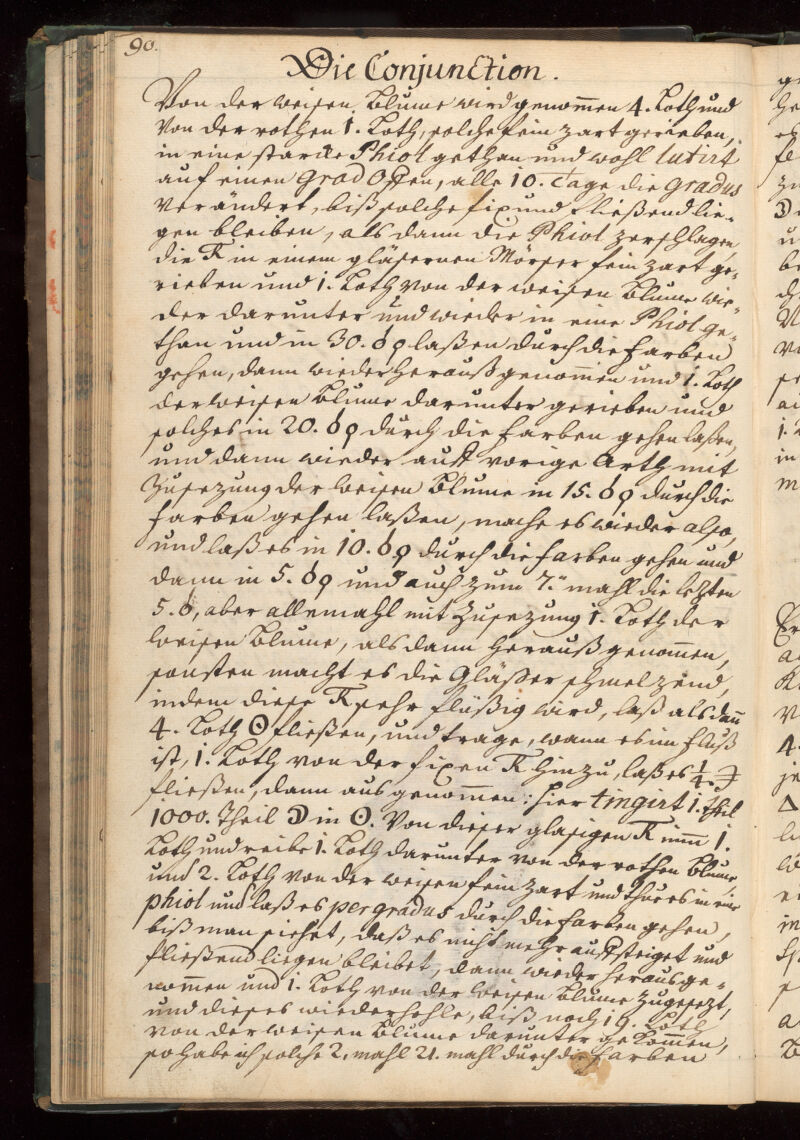 90.
Die Conjunction.
Von der weisen Blume wird genom̅en 4. Loth und
Von der rothen 1. Loth, solche fein zart gerieben,
in eine starcke Phiol gethan und wohl lutirt
auf einen grad Ofen, alle 10. Tage die gradus
verändert, biß solche fix und fließend lie-
gen bleiben, als dann die Phiol zerschlagen,
die in einem gläsernen Mörser fein zart ge-
rieben und 1. Loth von der weisen Blume wie-
der darunter und wieder in eine Phiol ge-
than und in 30. laßen durch die Farben
gehen, dann wieder herauß genom̅en und 1. Loth
der weisen Blume darunter gerieben und
solches in 20. durch die Farben gehen laßen,
und dann wieder auf vorige Arth mit
Zusezung der weisen Blume in 15. durch die
Farben gehen laßen, mache es wieder also,
und laß es in 10. durch die Farben gehen und
dann in 5. und auch zum 7. mahl die lezten
5. aber allemahl mit Zusezung 1. Loth der
weisen Blume, als dann herauß genom̅en,
sonsten macht es die Gläßer schmelzend,
indem diese sehr flüßig wird, laß als dan̅
4. Loth ☉ fließen, und trage, wann es im Fluß
ist, 1. Loth von der fixen hinzu, laß es 1/4
fließen, dann aus genom̅en: hier tingirt 1. Theil
1000. Theil ☽ in ☉. Von dieser glasigen nim̅ 1.
Loth und reibe 1. Loth darunter von der rothen Blume,
und 2. Loth von der weisen fein zart und thue es in eine
phiol und laß es per gradus durch die Farben gehen,
biß man siehet, daß es nicht mehr auffsteiget und
fließend liegen bleibet, dann wieder heraus ge-
nom̅en und 1. Loth von der weisen Blume zugesezt,
und dieses wiederhohle, biß noch 19. Loth
von der weisen Blume darunter gekom̅en,
so habe ich solche 2. mahl 21. mahl durch die Farben